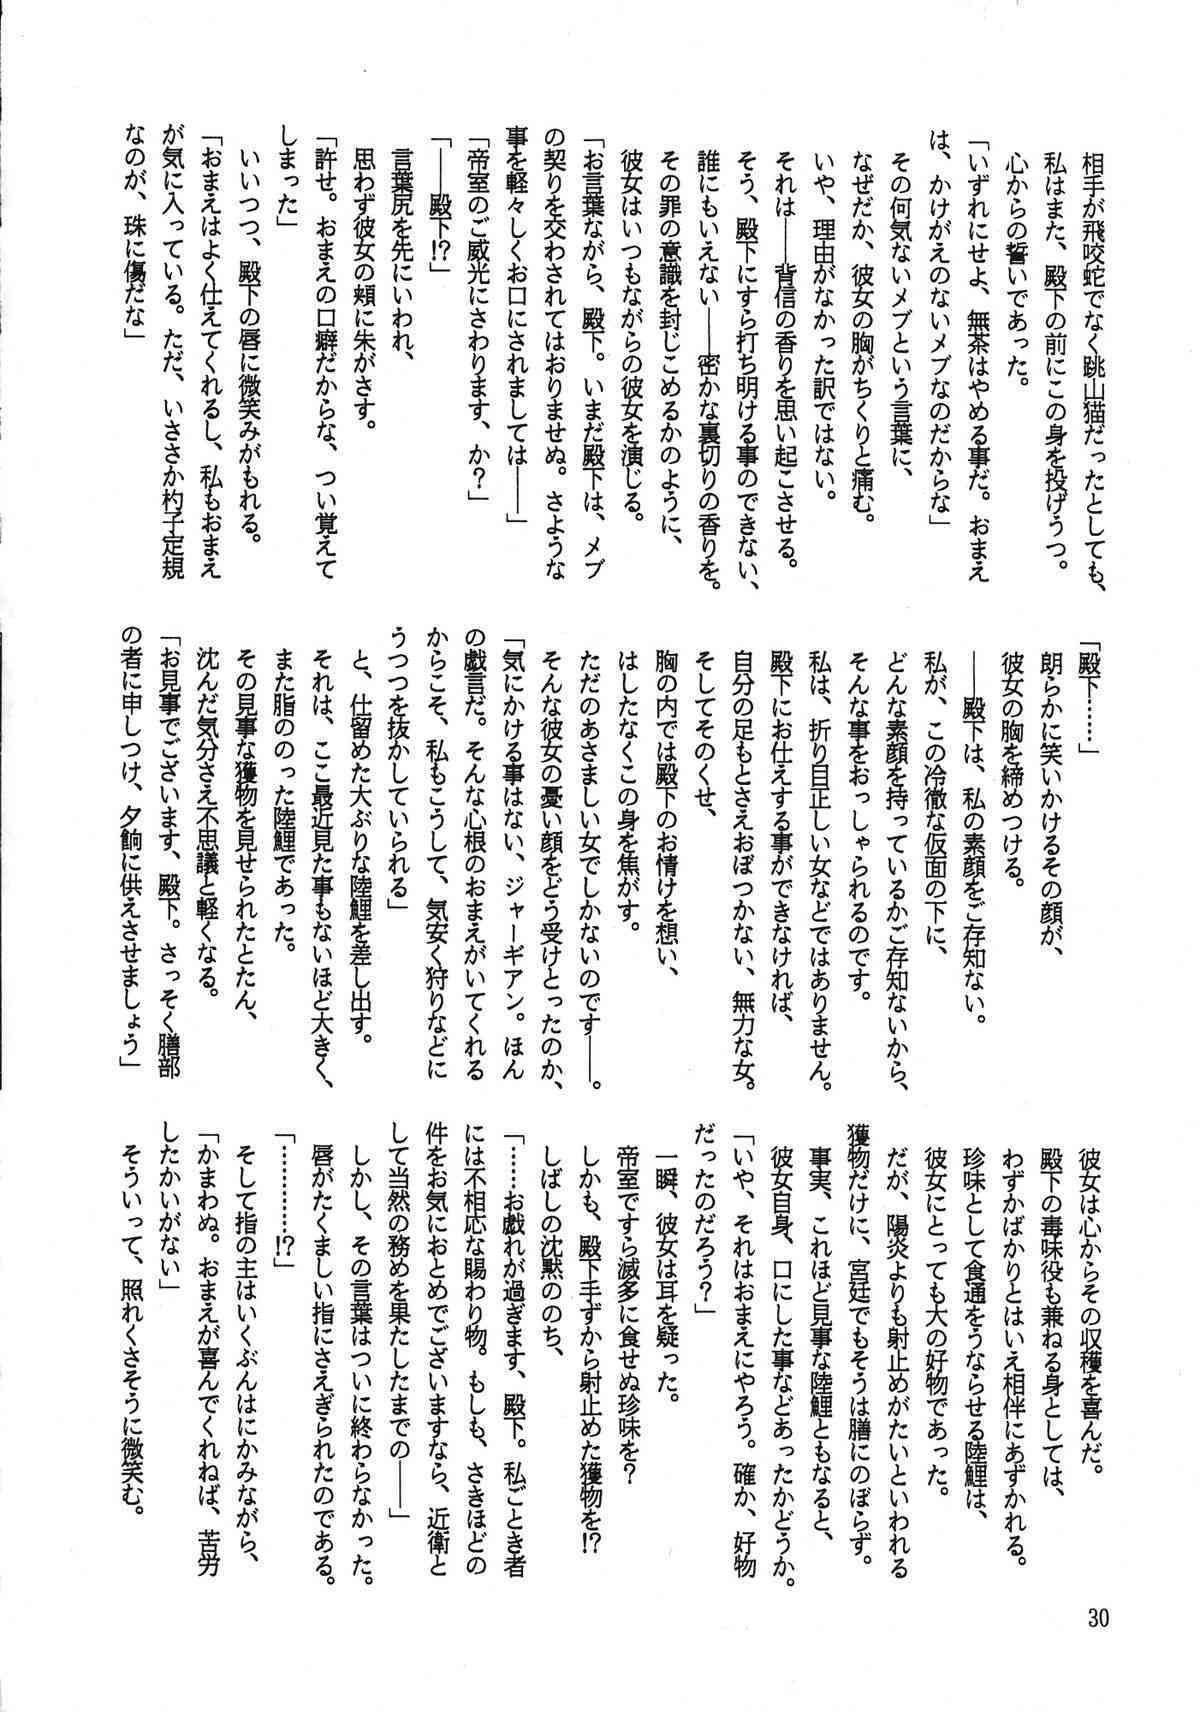 相手が飛咬蛇でなく跳山猫だったとしても、
私はまた、殿下の前にこの身を投げうつ。
心からの誓いであった。
「いずれにせよ、無茶はやめる事だ。おまえ
は、かけがえのないメブなのだからな」
その何気ないメブという言葉に、
なぜだか、彼女の胸がちくりと痛む。
いや、理由がなかった訳ではない。
それは――背信の香りを思い起こさせる。
そう、殿下にすら打ち明ける事のできない、
誰にもいえない――密かな裏切りの香りを。
その罪の意識を封じこめるかのように、
彼女はいつもながらの彼女を演じる。
「お言葉ながら、殿下。いまだ殿下は、メブ
の契りを交わされてはおりませぬ。さような
事を軽々しくお口にされましては――」
「帝室のご威光にさわります、か?」
「――殿下!?」
言葉尻を先にいわれ、
思わず彼女の頬に朱がさす。
「許せ。おまえの口癖だからな、つい覚えて
しまった」
いいつつ、殿下の唇に微笑みがもれる。
「おまえはよく仕えてくれるし、私もおまえ
が気に入っている。ただ、いささか杓子定規
なのが、珠に傷だな」
「殿下……」
朗らかに笑いかけるその顔が、
彼女の胸を締めつける。
――殿下は、私の素顔をご存知ない。
私が、この冷徹な仮面の下に、
どんな素顔を持っているかご存知ないから、
そんな事をおっしゃられるのです。
私は、折り目正しい女などではありません。
殿下にお仕えする事ができなければ、
自分の足もとさえおぼつかない、無力な女。
そしてそのくせ、
胸の内では殿下のお情けを想い、
はしたなくこの身を焦がす。
ただのあさましい女でしかないのです――。
そんな彼女の憂い顔をどう受けとったのか、
「気にかける事はない、ジャーギアン。ほん
の戯言だ。そんな心根のおまえがいてくれる
からこそ、私もこうして、気安く狩りなどに
うつつを抜かしていられる」
と、仕留めた大ぶりな陸鯉を差し出す。
それは、ここ最近見た事もないほど大きく、
また脂ののった陸鯉であった。
その見事な獲物を見せられたとたん、
沈んだ気分さえ不思議と軽くなる。
「お見事でございます、殿下。さっそく膳部
の者に申しつけ、夕餉に供えさせましょう」
彼女は心からその収穫を喜んだ。
殿下の毒味役も兼ねる身としては、
わずかばかりとはいえ相伴にあずかれる。
珍味として食通をうならせる陸鯉は、
彼女にとっても大の好物であった。
だが、陽炎よりも射止めがたいといわれる
獲物だけに、宮廷でもそうは膳にのぼらず。
事実、これほど見事な陸鯉ともなると、
彼女自身、口にした事などあったかどうか。
「いや、それはおまえにやろう。確か、好物
だったのだろう?」
一瞬、彼女は耳を疑った。
帝室ですら滅多に食せぬ珍味を?
しかも、殿下手ずから射止めた獲物を!?
しばしの沈黙ののち、
「……お戯れが過ぎます、殿下。私ごとき者
には不相応な賜わり物。もしも、さきほどの
件をお気におとめでございますなら、近衛と
して当然の務めを果たしたまでの――」
しかし、その言葉はついに終わらなかった。
唇がたくましい指にさえぎられたのである。
「…………!?」
そして指の主はいくぶんはにかみながら、
「かまわぬ。おまえが喜んでくれねば、苦労
したかいがない」
そういって、照れくさそうに微笑む。
30